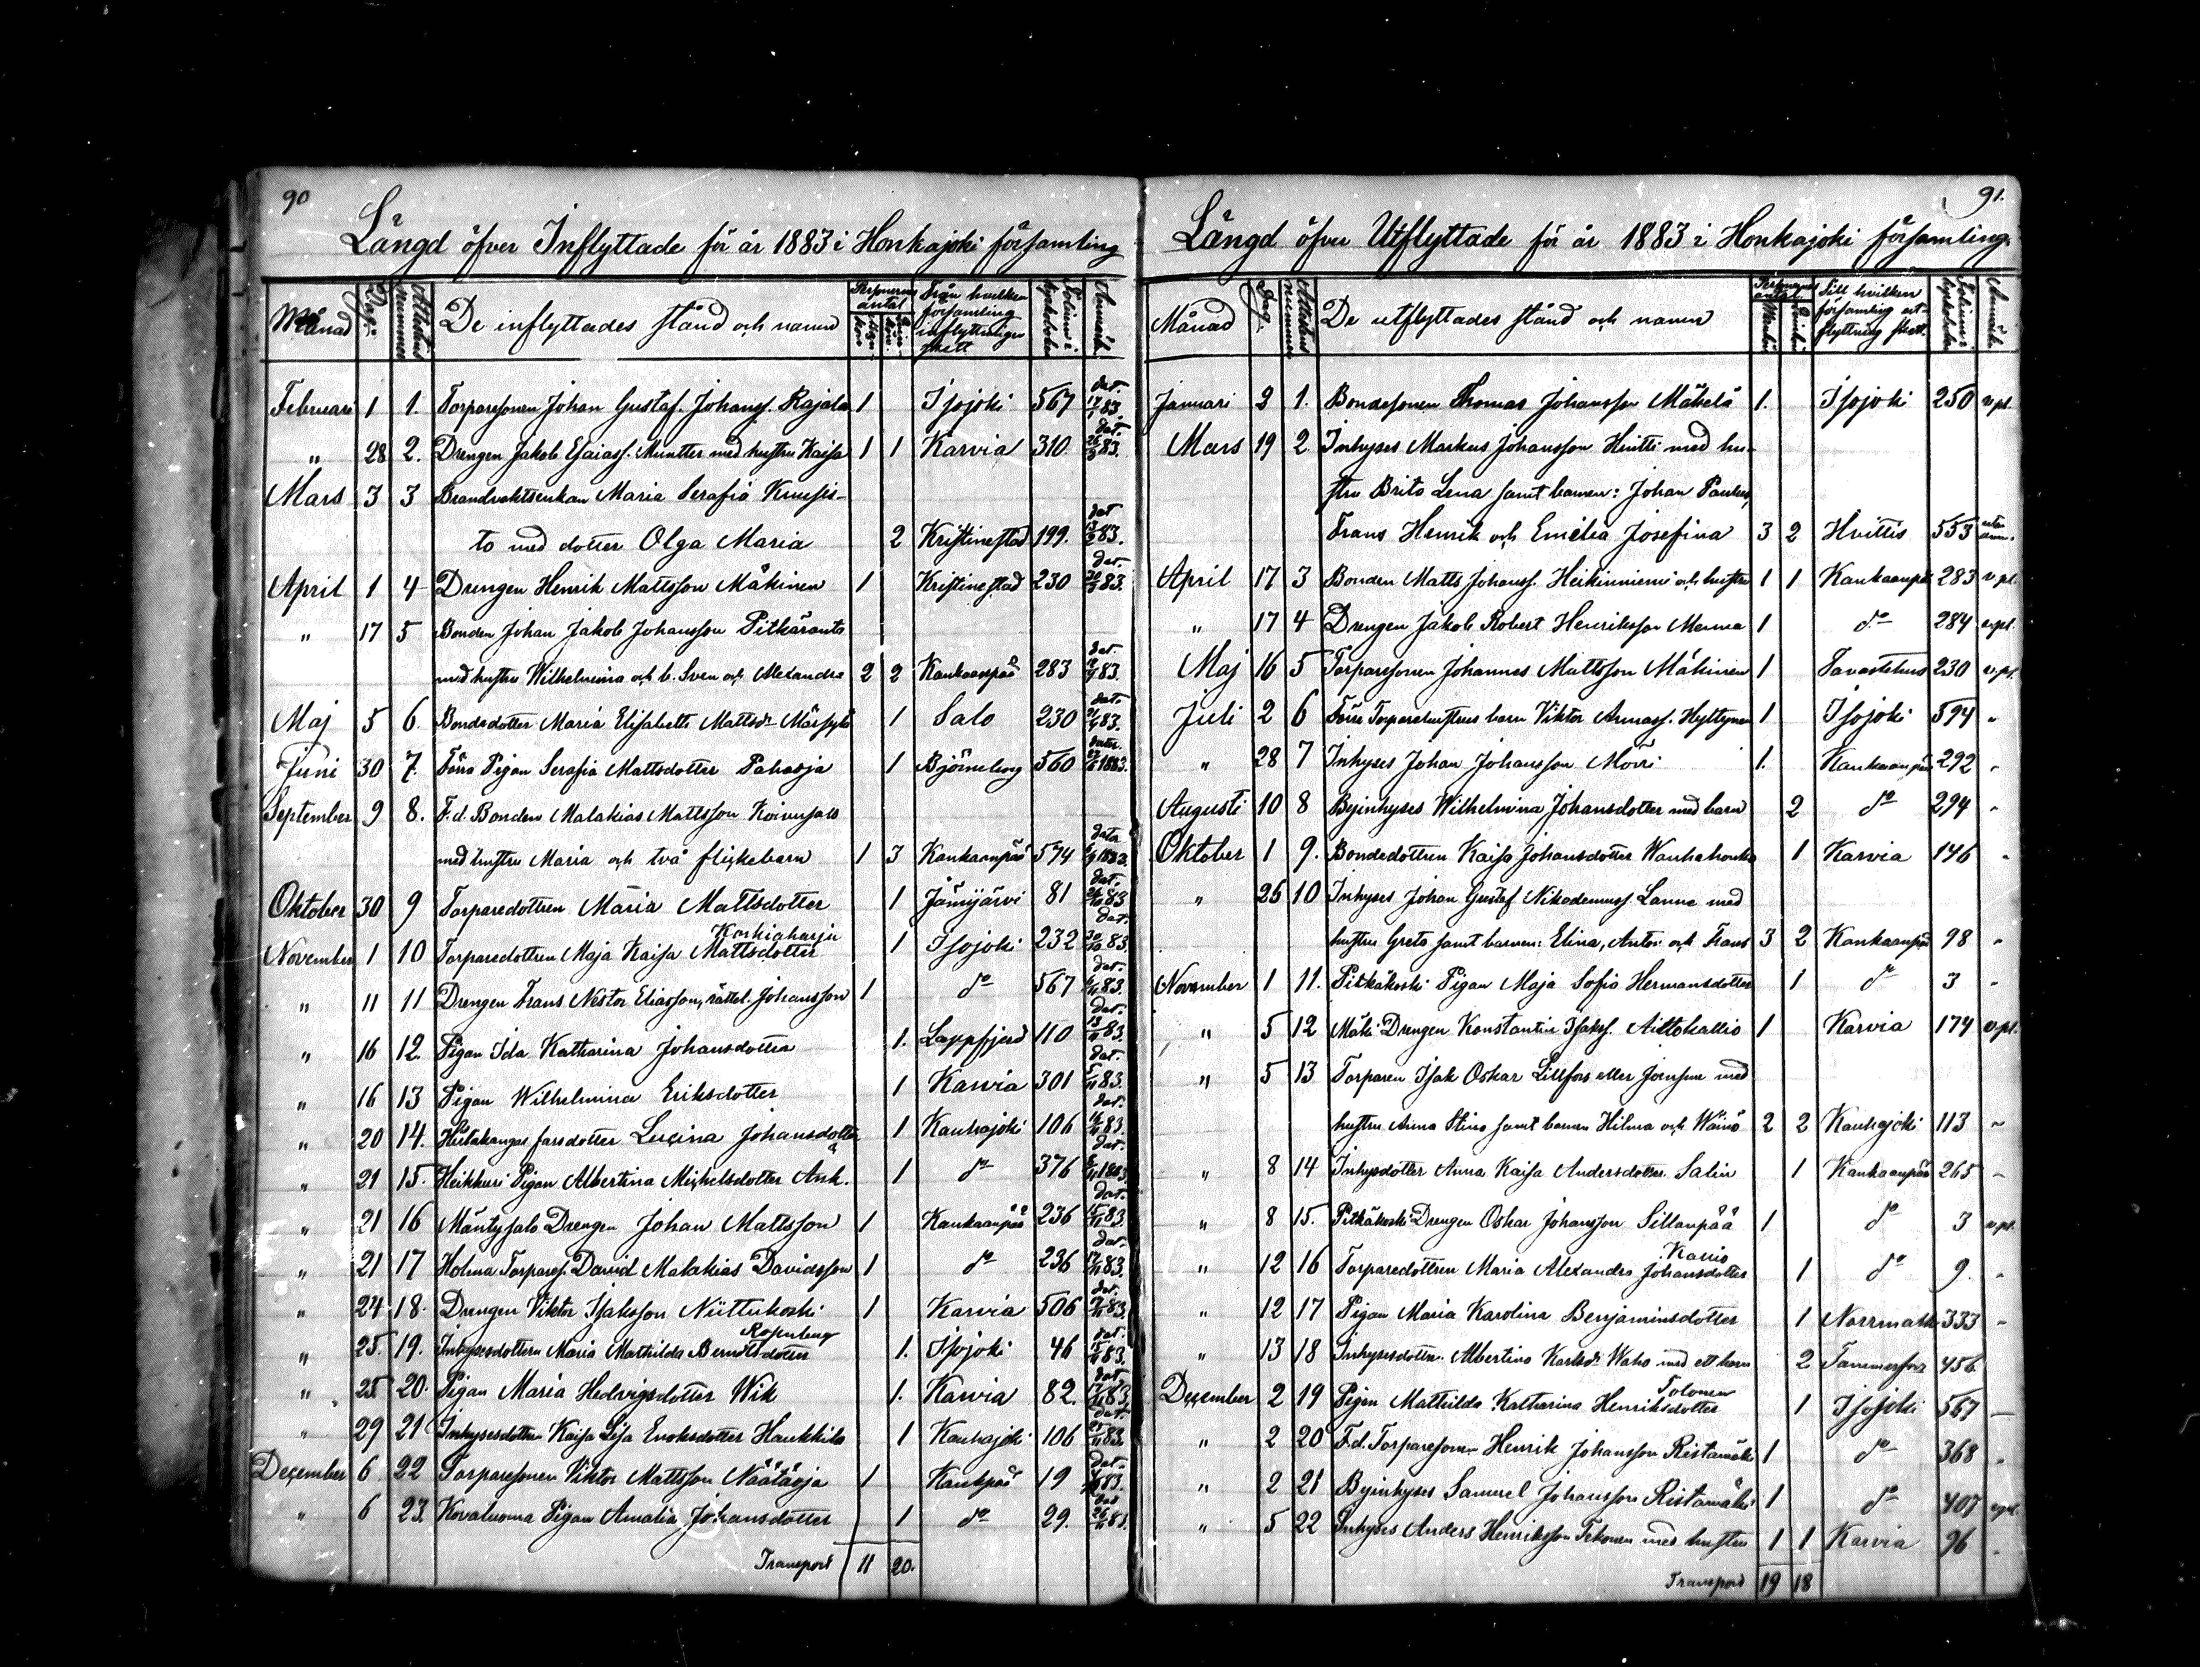 90
Längd öfver Inflyttade för år 1883 i Honkajoki församling
Månad Dag Attestens nummer De inflyttades stånd och namn Personernas antal Från hvilken församling inflyttningen skett
Februari 1 1. Torparesonen Johan Gustaf Johanss. Rajala 1 Isojoki 567 dat. 83.
" 28 2. Drengen Jakob Esaiass. Muntter med hustru Kaisa 1 1 Karvia 310 dat. 83.
Mars 3 3 Brandvaktsenkan Maria Serafia Kuusis-
to med dotter Olga Maria 2 Kristinestad 199. dat 83.
April 1 4 Drengen Henrik Mattsson Mäkinen 1 Kristinestad 230 dat. 83.
" 17 5 Bonden Johan Jakob Johansson Pitkäranta
med hustru Wilhelmina och b. Sven och Alexandra 2 2 Kankaanpää 283 dat. 83.
Maj 5 6. Bondedotter Maria Elisabeth Mattsdr 1 Salo 230 dat. 83.
Juni 30 7. Förra Pigan Serafia Mattsdotter Pahaoja 1 Björneborg 560 dater. 1883.
September 9 8. F.d. Bonden Malakias Mattsson Koivusalo
med hustru Maria och två flickebarn 1 3 Kankaanpää 574 1883.
Oktober 30 9 Torparedottren Maria Mattsdotter 1 Jämijärvi 81 dat. 83
November 1 10 Torparedottren Maja Kaisa Mattsdotter Koskiaharju 1 Isojoki 232 dat. 83.
" 11 11 Drengen Frans Nestor Eliasson, rättel. Johansson 1 do 567 dat. 83.
" 16 12. Pigan Ida Katharina Johansdotter 1. Lappfjerd 110 dat. 83.
" 16 13 Pigan Wilhelmina Eriksdotter 1 Karvia 301 dat. 83.
" 20 14. Hietakangas farsdotter Lucina Johansdotter 1 Kauhajoki 106 dat. 83.
" 21 15. Heikkuri Pigan Albertina Michelsdotter Ank. 1 do 376 1883.
" 21 16 Mäntysalo Drengen Johan Mattsson 1 Kankaanpää 236 dat. 83.
" 21 17 Holma Torpares. David Malakias Davidsson 1 do 236 dat. 83.
" 24 18. Drengen Viktor Isaksson Niittukoski 1 Karvia 506 dat. 83.
" 25. 19. Inhysesdottern Maria Mathilda Berndtsdotter Rosenberg 1. Isojoki 46 dat. 83.
" 25 20. Pigan Maria Hedvigsdotter Wik 1. Karvia 82. dat. 83.
" 29 21 Inhysesdottren Kaisa Lisa Enoksdotter Haukkila 1 Kauhajoki 106 dat. 83.
December 6. 22 Torparesonen Viktor Mattsson Näätäoja 1 Kankpää 19 dat. 83.
" 6 23. Kovaluoma Pigan Amalia Johansdotter 1 do 29. dat 83.
Transport 11 20.
91.
Längd öfver Utflyttade för år 1883 i Honkajoki församling.
Månad Dag. Attestens nummer De utflyttades stånd och namn Personernas antal Till hvilken församling utflyttning skett.
Januari 2 1. Bondesonen Thomas Johansson Mäkelä 1. Isojoki 250 v.pl.
Mars 19 2 Inhyses Markus Johansson Huitti med hu-
stru Brita Lena samt barnen: Johan Paulus,
Frans Henrik och Emelia Josefina 3 2 Huittis 553
April 17 3 Bonden Matts Johanss. Heikinniemi och hustru 1 1 Kankaanpää 283 v.pl.
" 17 4 Drengen Jakob Robert Henriksson Menna 1 do 284 v.pl.
Maj 16 5 Torparesonen Johannes Mattsson Mäkinen 1 Tavastehus 230 v.pl.
Juli 2 6 Förra Torparehustruns barn Viktor Armass. Hyttynen 1 Isojoki 594 "
" 28 7 Inhyses Johan Johansson Mörri 1. Kankaanpää 292 "
Augusti 10 8 Byinhyses Wilhelmina Johansdotter med barn 2 do 294 "
Oktober 1 9. Bondedottren Kaisa Johansdotter Wanhahonka 1 Karvia 146 "
" 26 10 Inhyses Johan Gustaf Nikodemuss. Lanne med
hustru Greta samt barnen: Elina, Antor och Frans 3 2 Kankaanpää 98 "
November 1 11. Pitkäkoski Pigan Maja Sofia Hermansdotter 1 do 3 "
" 5 12 Mäki Drengen Konstantin Isakss. Aittokallio 1 Karvia 174 v.pl.
" 5 13 Torparen Isak Oskar Lillfors eller Joensuu med
hustru Anna Stina samt barnen Hilma och Wäinö 2 2 Kauhajoki 113 "
" 8 14 Inhysdotter Anna Kaisa Andersdotter Salin 1 Kankaanpää 265 "
" 8 15. Pitkäkoski Drengen Oskar Johansson Sillanpää 1 do 3 v.pl.
" 12 16 Torparedottren Maria Alexandra Johansdotter 1 do 9. "
" 12 17 Pigan Maria Karolina Benjaminsdotter 1 Norrmark 333 "
" 13 18 Inhysesdottr. Albertina Karlsdr Waho med ett barn 2 Tammerfors 456
December 2 19 Pigan Mathilda Katharina Henriksdotter Tolonen 1 Isojoki 567 "
" 2 20 F.d. Torpareson Henrik Johansson Ristamäki 1 do 368 "
" 2 21 Byinhyses Samuel Johansson Ristamäki 1 do 407 v.pl.
" 5 22 Inhyses Anders Henriksson Tekonen med hustru 1 1 Karvia 96 "
Transport 19 18